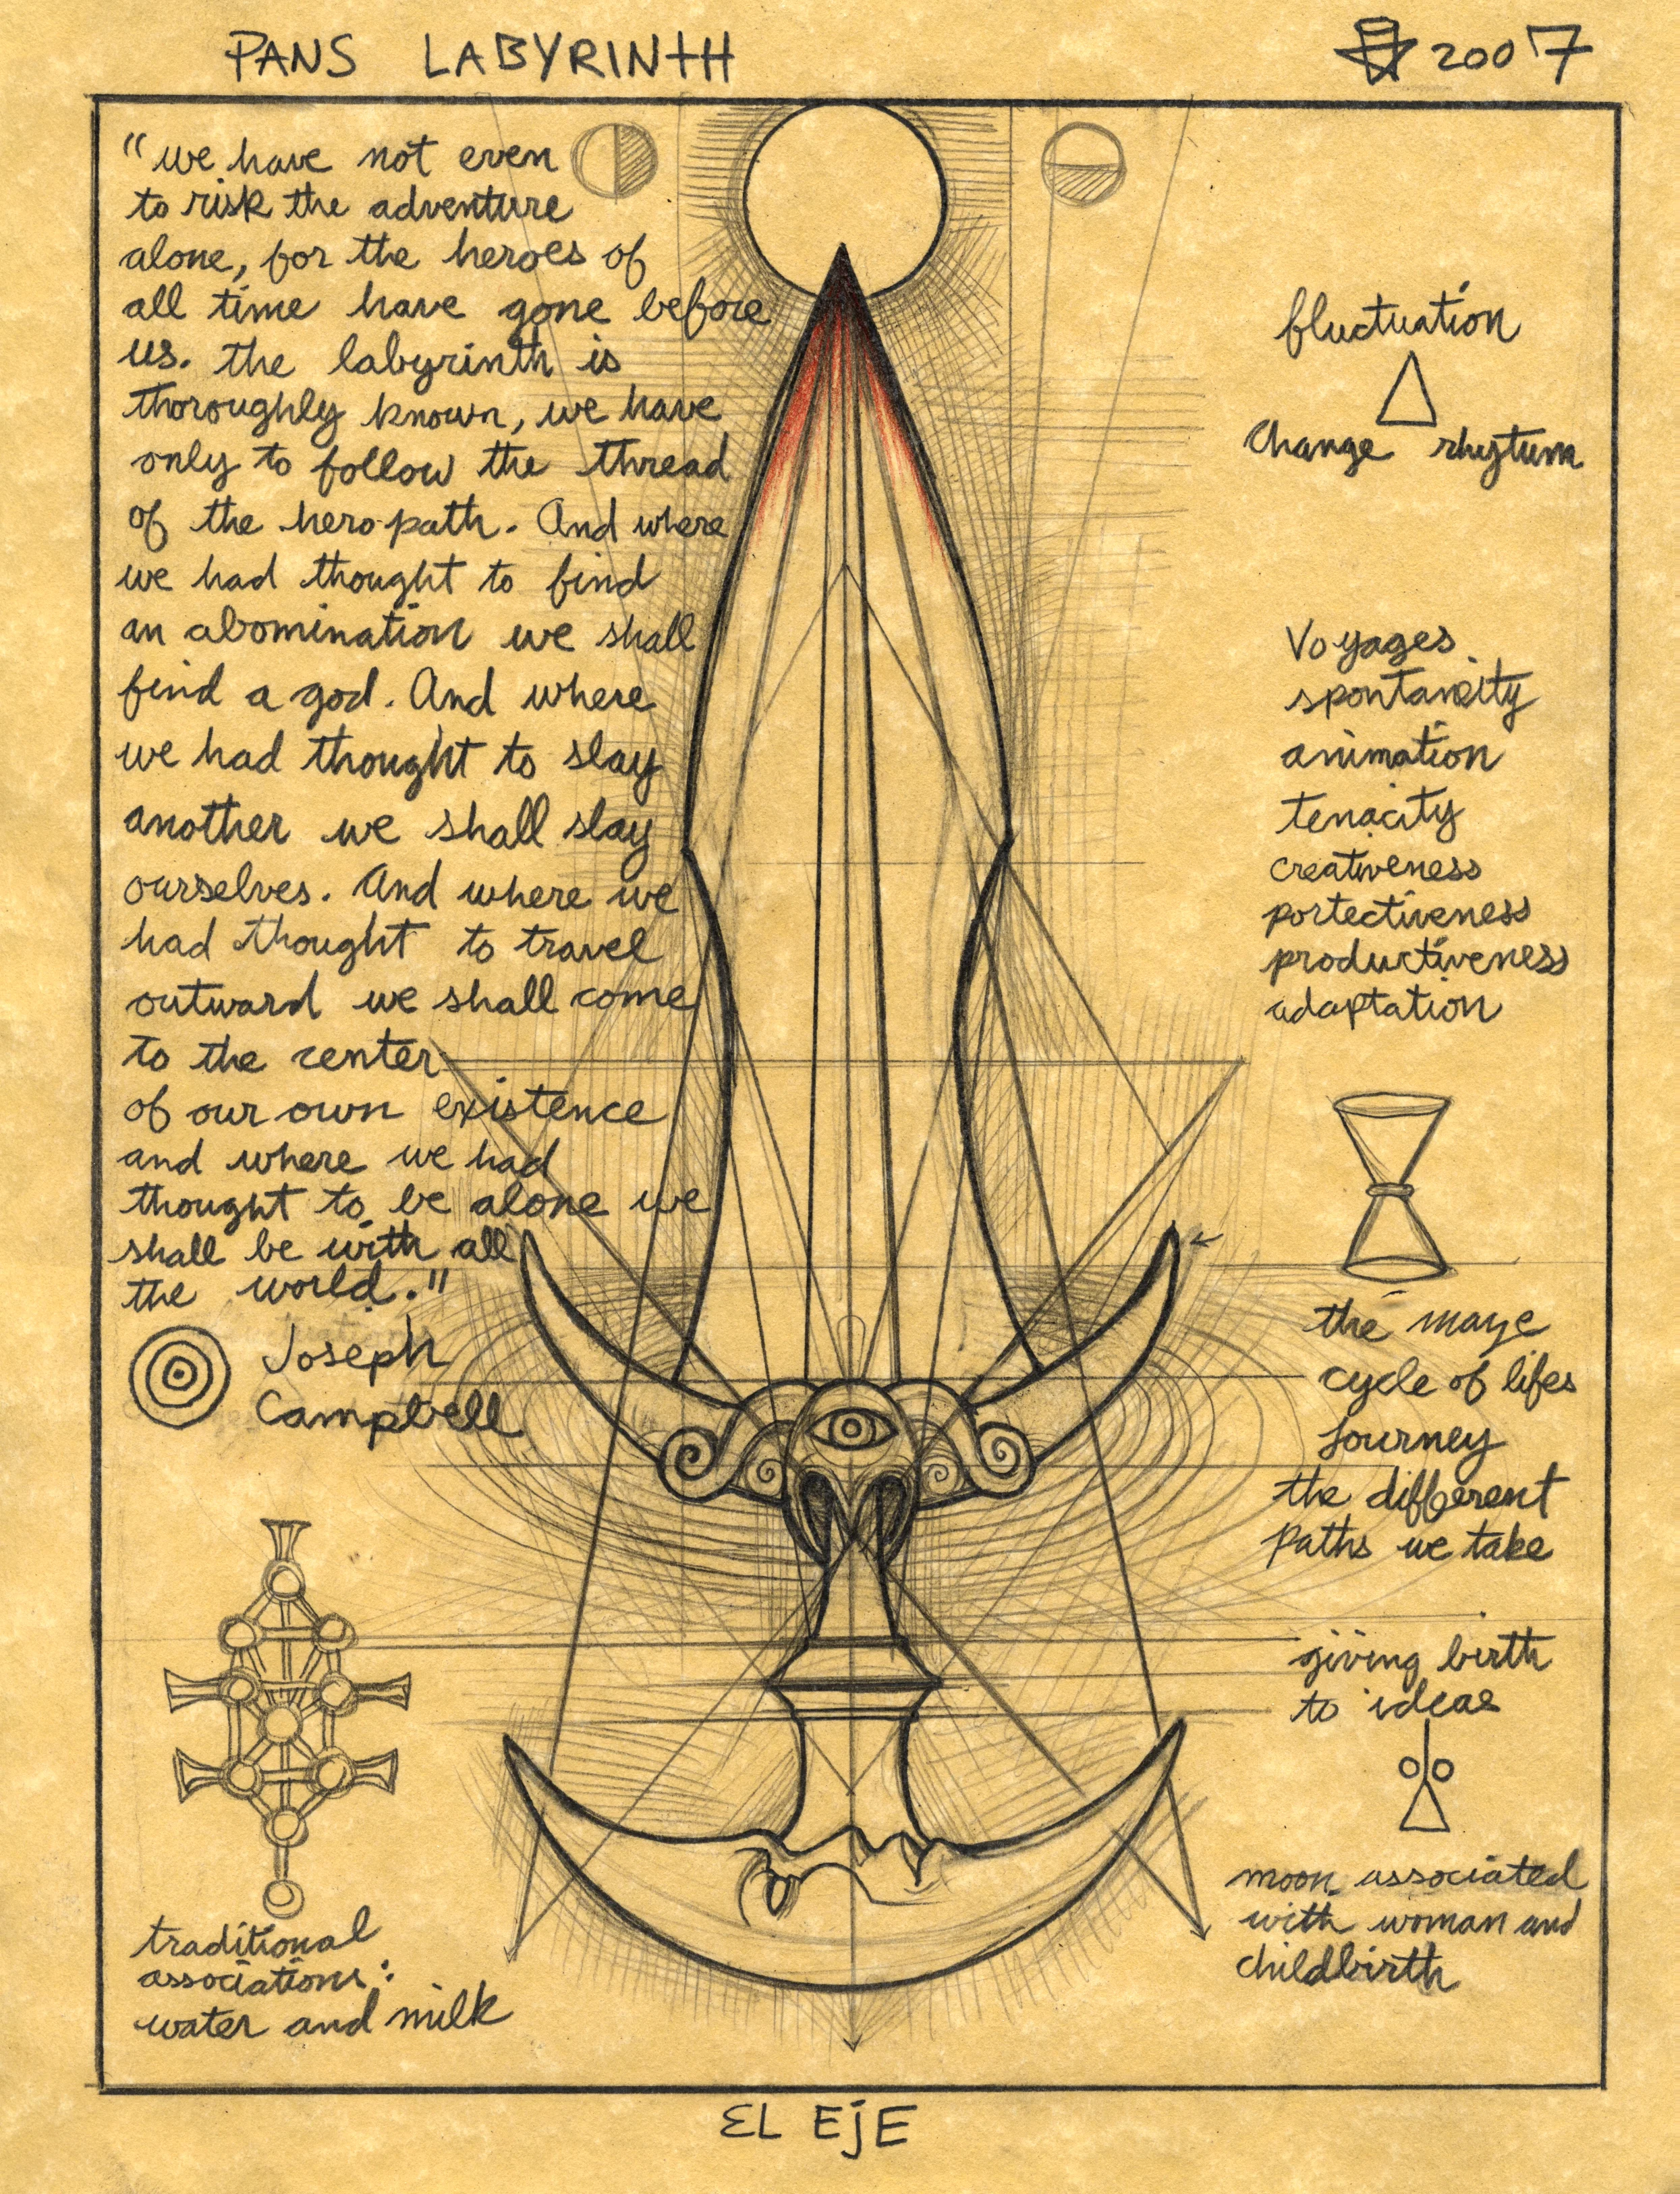 PANS LABYRINTH
2007
"we have not even
to risk the adventure
alone, for the heroes of
all time have gone before
us. the labyrinth is
thoroughly known, we have
only to follow the thread
of the hero path. And where
we had thought to find
an abomination we shall
find a god. And where
we had thought to slay
another we shall slay
ourselves. And where we
had thought to travel
outward we shall come
to the center
of our own existence
and where we had
thought to be alone we
shall be with all
the world."
Joseph
Campbell
traditional
associations:
water and milk
fluctuation
change rhytum
Voyages
spontaneity
animation
tenacity
creativeness
portectiveness
productiveness
adaptation
the maze
cycle of lifes
Journey
the different
paths we take
giving birth
to ideas
moon associated
with woman and
childbirth
EL EjE